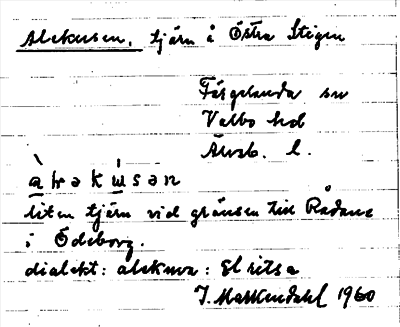 Alekusen. tjärn å Östra Stigen
Färgelanda sn
Valbo hd
Älvsb. l.
liten tjärn vid gränsen till Rådane
i Ödeborg.
dialekt: alekuva: El ritsa
J. Markendahl 1960